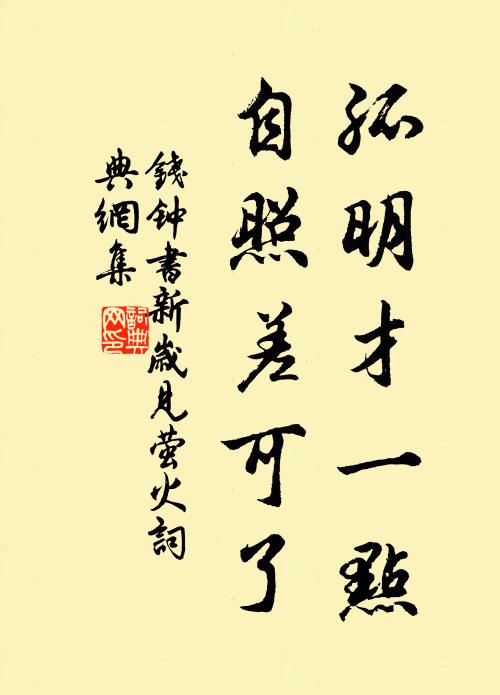 孤明才一點
自照差可了
錢钟書新歲見萤火詞
典網集
詞典
网印